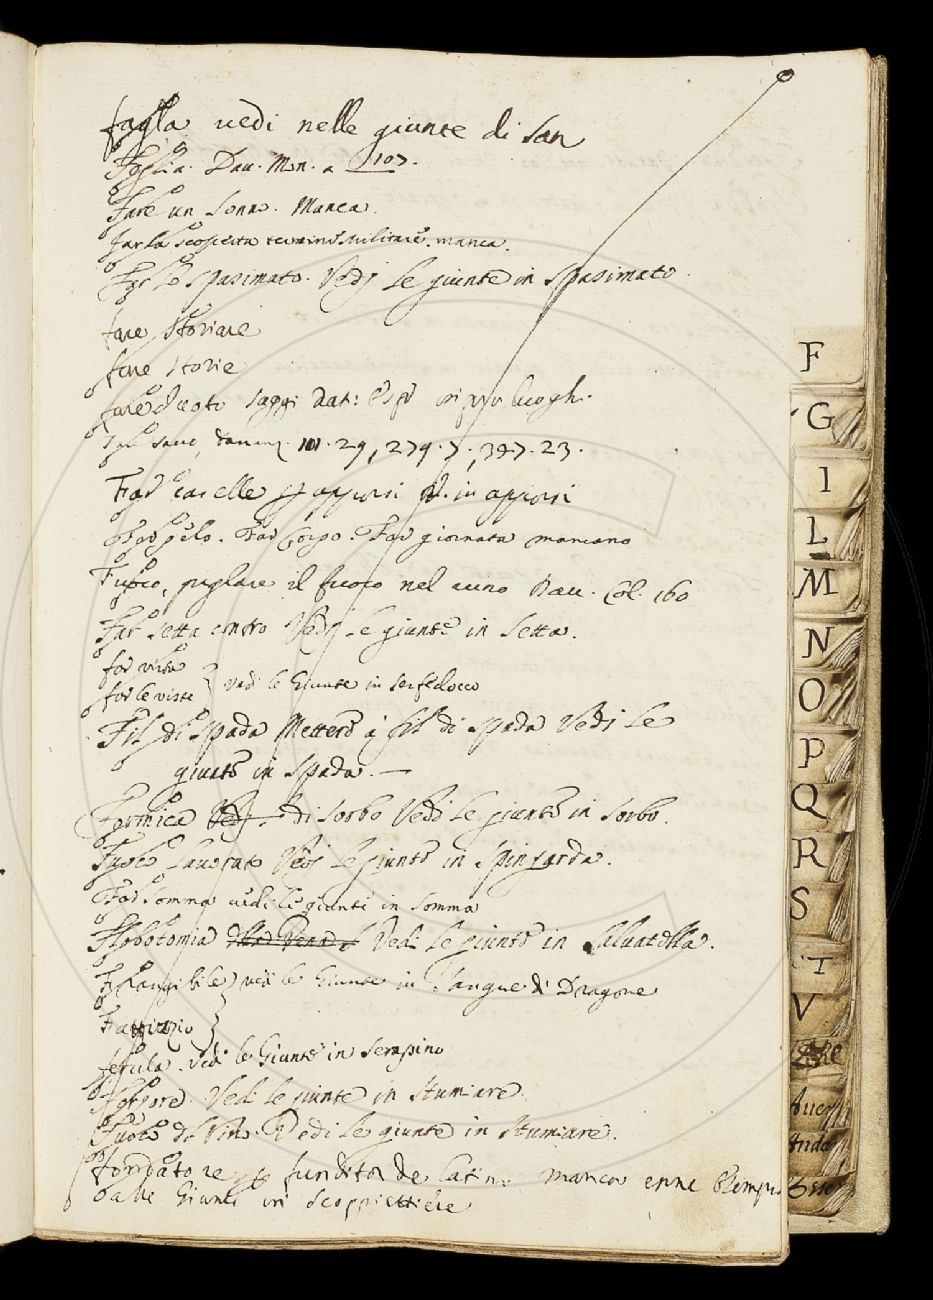 fagla vedi nelle giunte di San
Foglia. Dav. Mon. a 107.
Fare un sonno. Manca.
far la scoperta termine militare. manca.
Far lo spasimato. Vedi le giunte in Spasimato.
fare storiare
fare storie
fare saggi nat: esp in luoghi.
101. 29, 279. 7., 397. 23.
Far caselle p apporsi v. in apporsi
Far pelo. Far corpo. Far giornata mancano
Fuoco, pigliare il fuoco nel Dav. Col. 160
Far setta contro Vedi le giunte in Setta.
far vista
far le viste } vedi le Giunte in serfedocco
Fil di spada Mettere a fil di spada Vedi le
giunte in Spada. —
Formica Vedi di sorbo Vedi le giunte in Sorbo.
Fuoco lavorato Vedi le giunte in Spingarda.
Far somma vedi le giunte in Somma
Flobotomia Vedi le giunte in Salvatella.
Frangibile) vedi le Giunte in Sangue di Dragone
Fattizio }
ferula. vedi le Giunte in Serapino
Vedi le giunte in stumiare.
Vedi le giunte in stumiare.
fonditore p funditor de latini manca enne esempio
alle Giunte in Scoppiettiere
F
G
I
L
M
N
O
P
Q
R
S
T
V
Aver
Anda
Esser